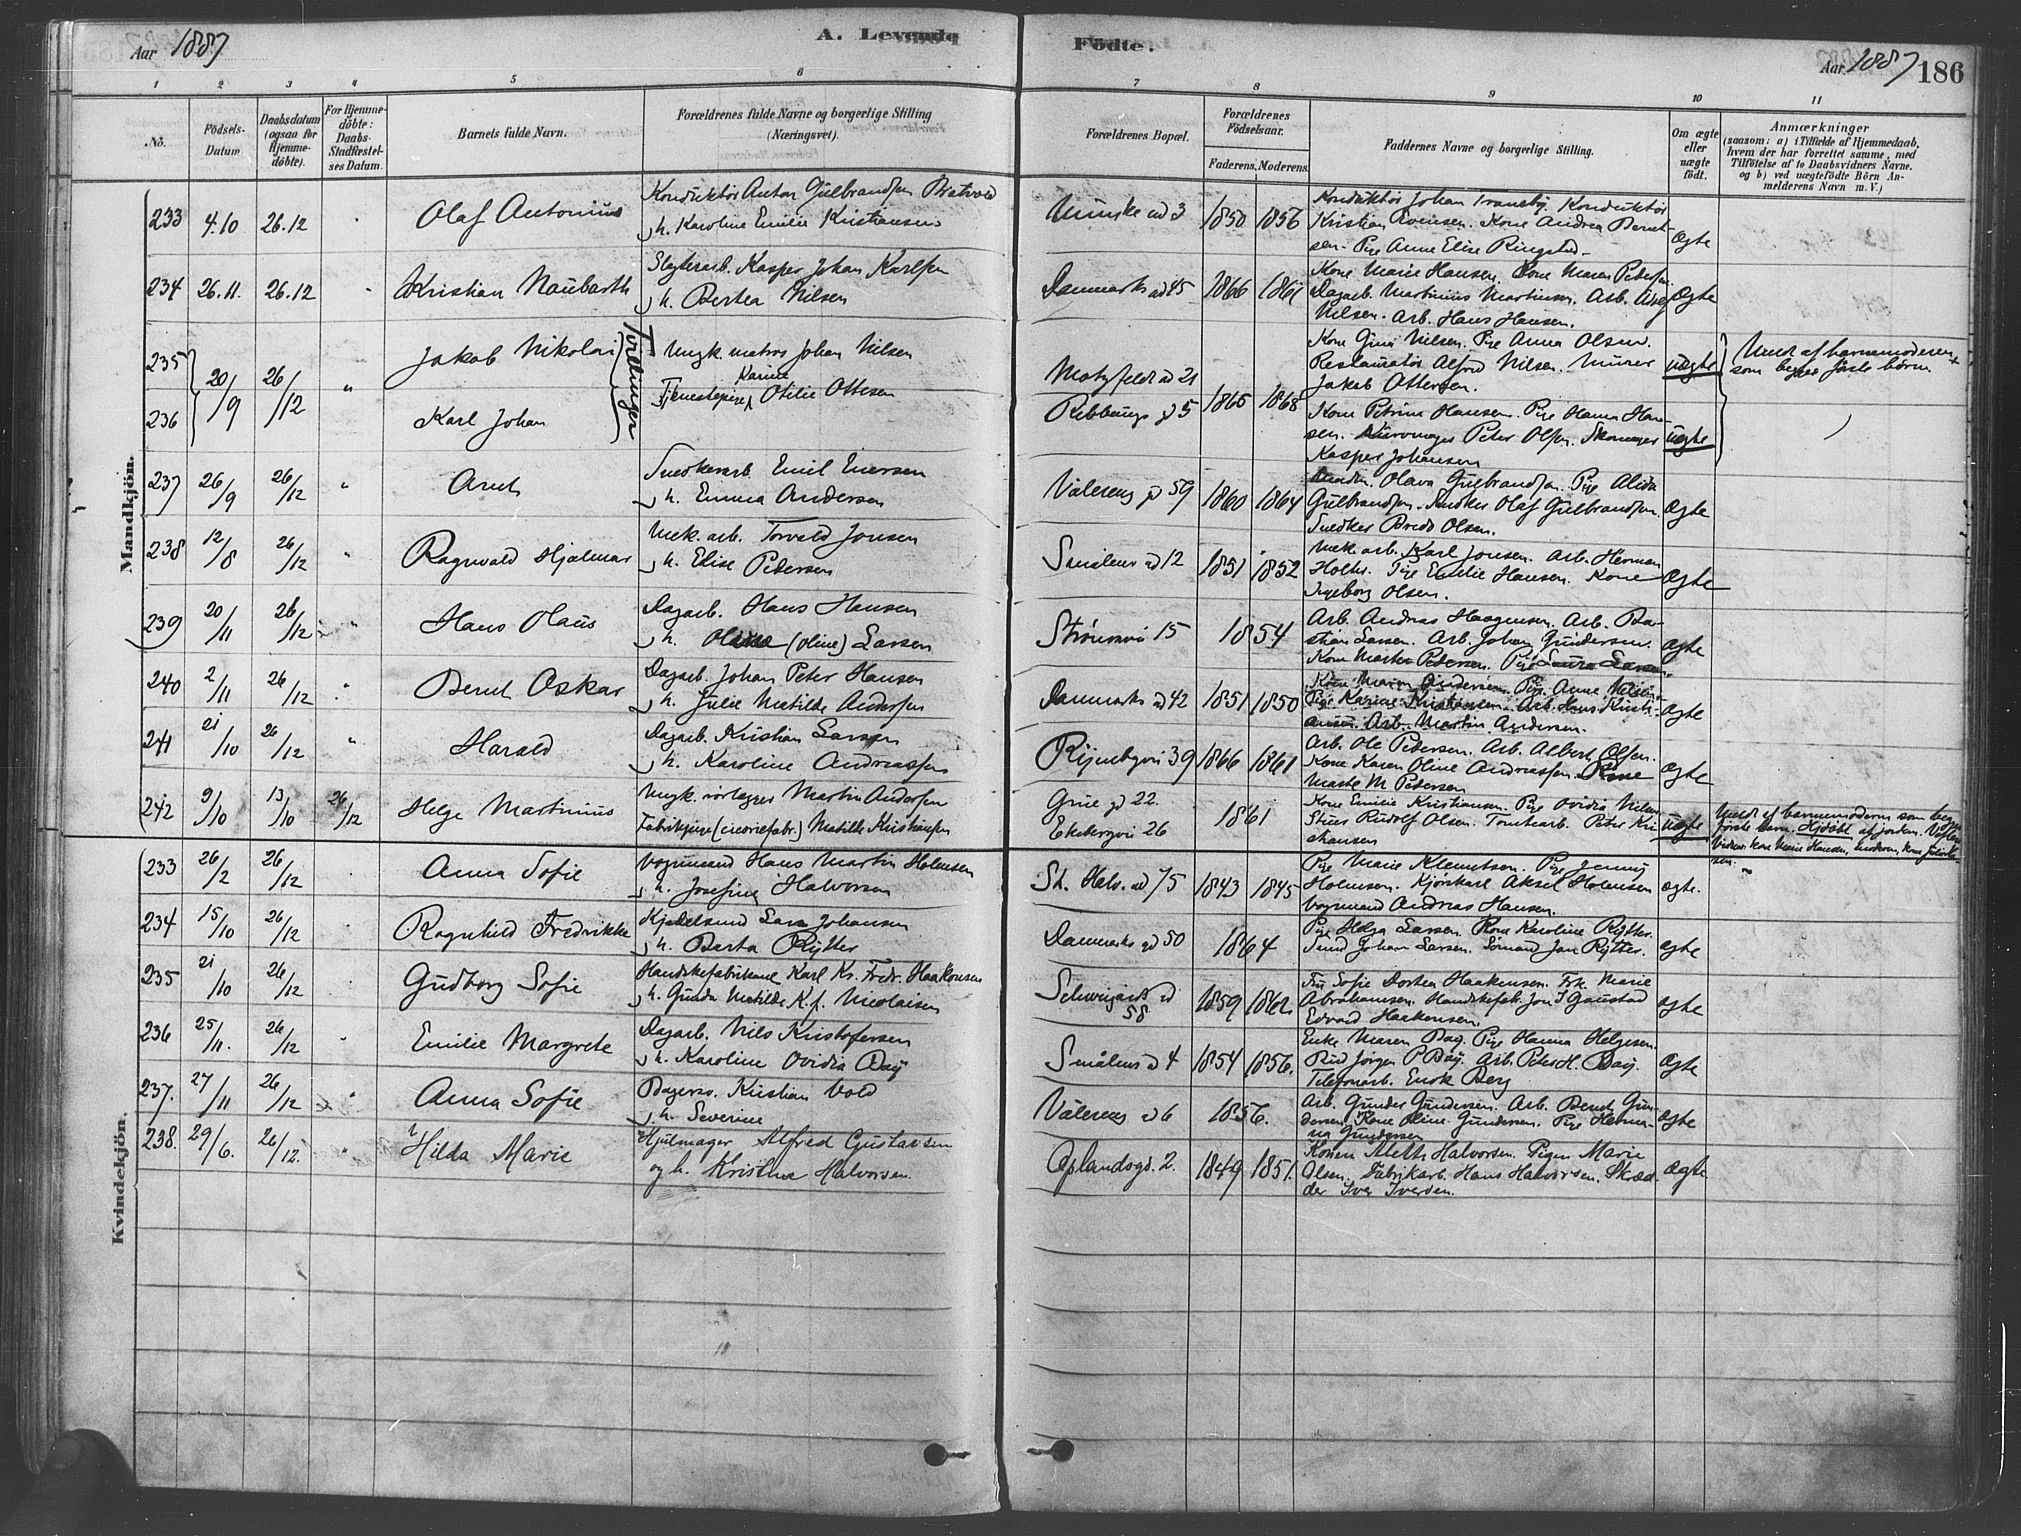 Aar 1887
A. Levende
Födte.
Aar 1887
186
1 2 3 4 5 6 7 8 9 10 11
No.
Födsels-Datum.
Daabsdatum (ogsaa for Hjemme-döbte).
For Hjemme-döbte: Daabs-Stadfæstel-ses Datum.
Barnets fulde Navn.
Forældrenes fulde Navne og borgerlige Stilling
(Næringsvei).
Forældrenes Bopæl.
Forældrenes Födselsaar.
Faderens. Moderens.
Faddernes Navne og borgerlige Stilling.
Om ægte eller uægte födt.
Anmærkninger
(saasom: a) i Tilfælde af Hjemmedaab,
hvem der har forrettet samme, med
Tilföielse af to Daabsvidners Navne.
og b) ved uægtefödte Börn An-
melderens Navn m. V.)
Mandkjön.
233 4.10 26.12 Olaf Antonius
Konduktör Anton Gulbrandsen Bratvold
h. Karoline Emilie Kristiansen
1850 1856
Konduktör Johan Traneby. Konduktör
Kristian Evensen. Kone Andrea Bernt-
sen. Pige Anne Elise Ringstad
Ægte
234 26.11. 26.12 Kristian Naubarth
Slagterarb. Kasper Johan Karlsen
h. Bertea Nilsen
Danmarks gd 45 1866
Kone Marie Hansen. Kone Maren Pedersen.
Dagarb. Martinius Martinsen. Arb. Adolf
Nilsen. Arb. Hans Hansen.
Ægte
235 20/9 26/12 Jakob Nikolai
Tvillinger
Ungk. matros Johan Nilsen
Karine
Tjenestepige Otilie Ottesen
Motzfeldts gd 21
Kone Gina Nilsen. Pige Anna Olsen.
Restauratör Alfred Nilsen. Murer
Jakob Ottersen.
uægte
Meldt af barnemoderen
som begges förste börn.
236 Karl Johan
Ribbungs gd 5 1865 1868
Kone Petrine Hansen. Pige Hanna Han-
sen. Peter Olsen. Skomager
Kasper Johansen
uægte
237 26/9 26/12 Arnt
Snedkerarb. Emil Iversen
h. Emma Andersen
Vålereng gd 59 1860 1864
Olava Gulbrandsen. Pige Alida
Gulbrandsen. Snedker Olaf Gulbrandsen.
Snedker Brede Olsen.
Ægte
238 12/8 26/12 Ragnvald Hjalmar
Mek. arb. Torvald Jonsen
h. Elise Pedersen
Smålens gd 12 1851 1852
Mek. arb. Karl Jonsen. Arb. Herman
Holter. Pige Emilie Hansen. Kone
Ingeborg Olsen.
Ægte
239 20/11 26/12 Hans Olaus
Dagarb. Hans Hansen
h. (Oline) Larsen
Strömsvei 15 1854
Arb. Andreas Haagensen. Arb. Ba-
stian Larsen. Arb. Johan Gundersen.
Kone Marte Pedersen. Pige Laura Larsen.
Ægte
240 2/11 26/12 Bernt Oskar
Dagarb. Johan Peter Hansen
h. Julie Matilde Andersen
Danmarks gd 42 1851 1850
Kone Maren Andersen. Pige Anne Nilsen.
Pige Karine Kristiansen. Arb. Hans Kristi-
ansen. Arb. Martin Andersen.
Ægte
241 21/10 26/12 Harald
Dagarb. Kristian Larsen
h. Karoline Andreassen
Ryenbgvei 39 1866 1861
Arb. Ole Pedersen. Arb. Albert Olsen.
Kone Karen Oline Andreassen. Kone
Marte M Pedersen
Ægte
242 9/10 13/10 26/12 Helge Martinius
Ungk. rörlægger Martin Andersen
Fabrikpige (cicoriefabr.) Matilde Kristiansen
Grue gd 22.
Ekebergvei 26 1861
Kone Emilie Kristiansen. Pige Ovidia Nilsen
Stuer Rudolf Olsen. Tomtearb. Peter Kri-
stiansen
uægte
Meldt af barnemoderen som begges
förste barn. Hjdöbt af jordm.
Kvindekjön.
233 26/2 26/12 Anna Sofie
Vognmand Hans Martin Holmsen
h. Josefine Halvorsen
St. Halv. gd 75 1843 1845
Pige Marie Klemetsen. Pige Jenny
Holmsen. Kjörekarl Aksel Holmsen
Vognmand Andreas Hansen.
ægte.
234 15/10 26/12 Ragnhild Fredrikke
Kjedelsmed Lars Johansen
h. Berta Rytter
Danmarks gd 50 1864
Pige Helga Larsen. Kone Karoline Rytter.
Smed Johan Larsen. Sömand Jan Rytter.
ægte
235 21/10 26/12 Gudborg Sofie
Handskefabrikant Karl Kr. Fredr. Haakensen
h. Gunda Matilde K.f. Nicolaisen
Schweigårds gd
58 1859 1862
Fru Sofie Dortea Haakensen. Frk. Marie
Abrahamsen. Handskefab. Jon J Gaustad
Edvard Haakensen.
ægte
236 25/11. 26/12 Emilie Margrete
Dagarb. Nils Kristofersen
h. Karoline Ovidia Day
Smålens gd 4 1854 1856.
Enke Maren Day. Pige Hanna Helgesen.
Bud Jörgen P Day. Arb. Peter H. Day.
Telefonarb. Enok Berg
Ægte
237. 27/11 26/12 Anna Sofie
Kristian Vold
h. Severine
Vålereng gd 6 1856.
Arb. Gunder Gundersen. Arb. Bernt Gun-
dersen. Kone Oline Gundersen. Pige Herma-
na Gundersen
ægte
238. 29/6. 26/12. Hilda Marie
Hjulmager Alfred Gustavsen
og h. Kristine Halvorsen.
Oplandsgd. 2. 1849 1851.
Konen Aleth Halvorsen. Pigen Marie
Olsen. Fabrikarb. Hans Halvorsen. Skræd-
der Iver Iversen.
Ægte